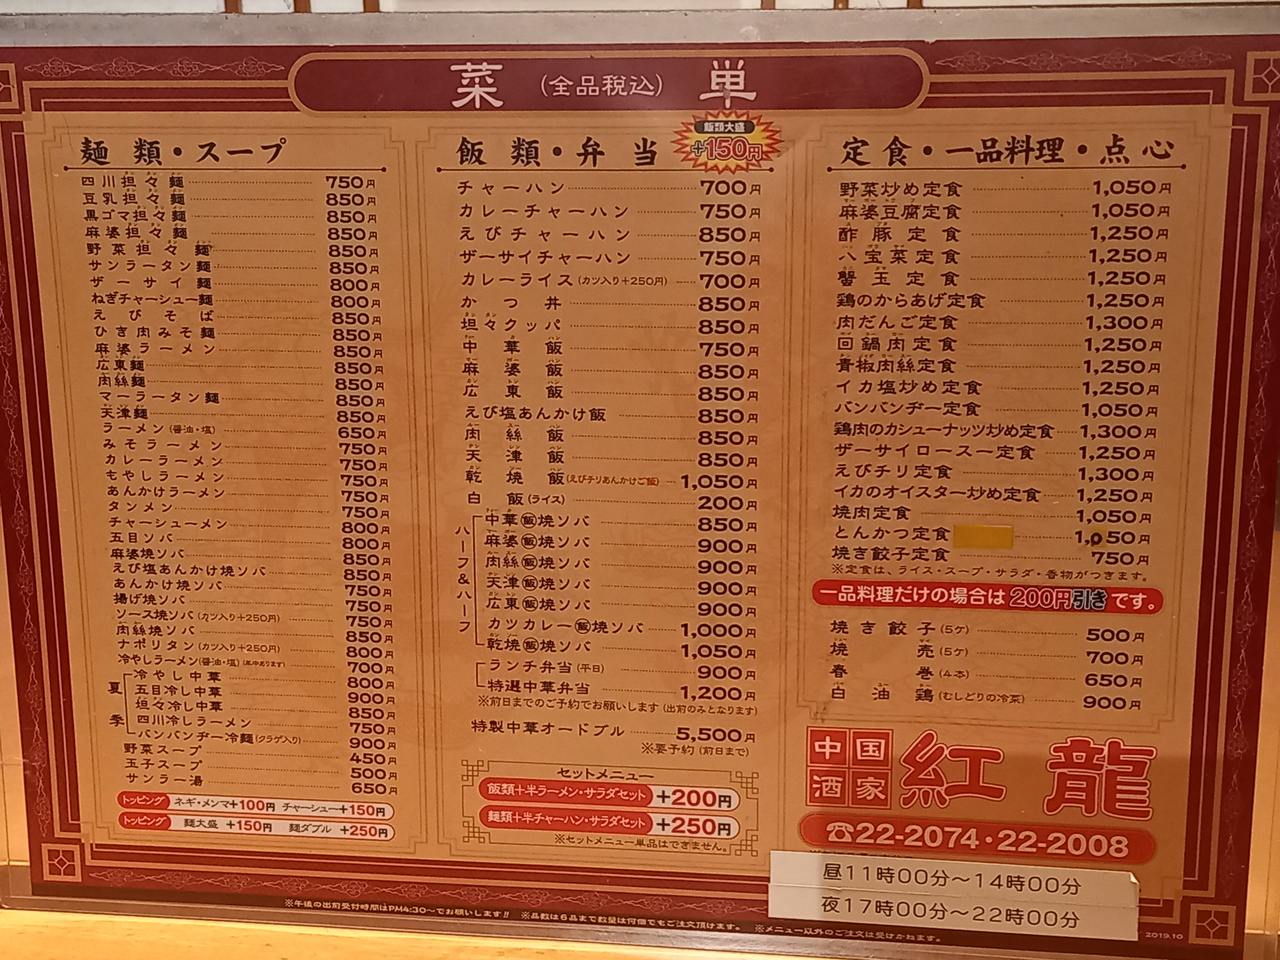 菜 (全品税込) 単
麺類・スープ
四川担々麺 750円
豆乳担々麺 850円
黒ゴマ担々麺 850円
麻婆担々麺 850円
野菜担々麺 850円
サンラータン麺 850円
ザーサイ麺 800円
ねぎチャーシュー麺 800円
えびそば 850円
ひき肉みそ麺 850円
麻婆ラーメン 850円
広東麺 850円
肉絲麺 850円
マーラータン麺 850円
天津麺 850円
ラーメン(醤油・塩) 650円
みそラーメン 750円
カレーラーメン 750円
もやしラーメン 750円
あんかけラーメン 750円
タンメン 750円
チャーシューメン 800円
五目ソバ 800円
麻婆焼ソバ 850円
えび塩あんかけ焼ソバ 850円
あんかけ焼ソバ 750円
揚げ焼ソバ 750円
ソース焼ソバ(カツ入り+250円) 750円
肉絲焼ソバ 850円
ナポリタン(カツ入り+250円) 800円
冷やしラーメン(醤油・塩)(年中あります) 700円
夏季
冷やし中華 800円
五目冷し中華 900円
担々冷し中華 850円
四川冷しラーメン 750円
バンバンヂー冷麺(クラゲ入り) 900円
野菜スープ 450円
玉子スープ 500円
サンラー湯 650円
トッピング ネギ・メンマ+100円 チャーシュー+150円
トッピング 麺大盛 +150円 麺ダブル +250円
飯類・弁当
飯類大盛 +150円
チャーハン 700円
カレーチャーハン 750円
えびチャーハン 850円
ザーサイチャーハン 750円
カレーライス(カツ入り+250円) 700円
かつ丼 850円
担々クッパ 850円
中華飯 750円
麻婆飯 850円
広東飯 850円
えび塩あんかけ飯 850円
肉絲飯 850円
天津飯 850円
乾焼飯(えびチリあんかけご飯) 1,050円
白飯(ライス) 200円
ハーフ&ハーフ
中華飯焼ソバ 850円
麻婆飯焼ソバ 900円
肉絲飯焼ソバ 900円
天津飯焼ソバ 900円
広東飯焼ソバ 900円
カツカレー飯焼ソバ 1,000円
乾焼飯焼ソバ 1,050円
ランチ弁当(平日) 900円
特選中華弁当 1,200円
※前日までのご予約でお願いします(出前のみとなります)
特製中華オードブル 5,500円
※要予約(前日まで)
セットメニュー
飯類+半ラーメン・サラダセット +200円
麺類+半チャーハン・サラダセット +250円
※セットメニュー単品はできません。
定食・一品料理・点心
野菜炒め定食 1,050円
麻婆豆腐定食 1,050円
酢豚定食 1,250円
八宝菜定食 1,250円
蟹玉定食 1,250円
鶏のからあげ定食 1,250円
肉だんご定食 1,300円
回鍋肉定食 1,250円
青椒肉絲定食 1,250円
イカ塩炒め定食 1,250円
バンバンヂー定食 1,050円
鶏肉のカシューナッツ炒め定食 1,300円
ザーサイロースー定食 1,250円
えびチリ定食 1,300円
イカのオイスター炒め定食 1,250円
焼肉定食 1,050円
とんかつ定食 1,050円
焼き餃子定食 750円
※定食は、ライス・スープ・サラダ・香物がつきます。
一品料理だけの場合は200円引きです。
焼き餃子(5ケ) 500円
焼売(5ケ) 700円
春巻(4本) 650円
白油鶏(むしどりの冷菜) 900円
中国酒家 紅龍
☎22-2074・22-2008
昼11時00分～14時00分
夜17時00分～22時00分
※午後の出前受付時間はPM4:30～でお願いします!! ※品数は6品まで数量は何個でもご注文頂けます。 ※メニュー以外のご注文は受けかねます。
2019.10